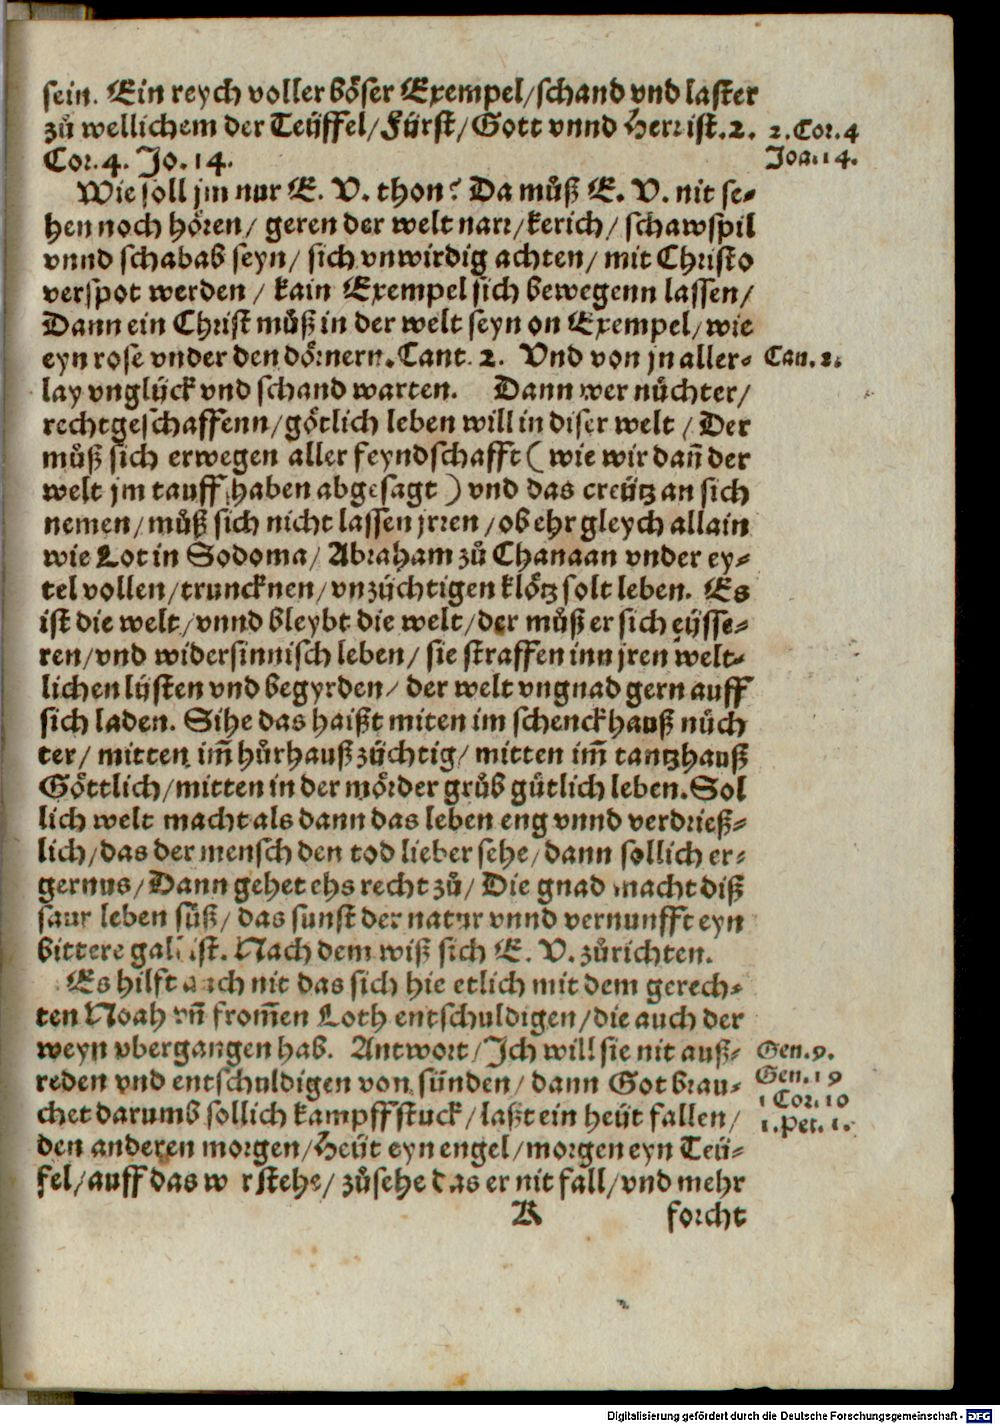 sein. Ein reych voller böser Exempel/schand vnd laster
zů wellichem der Teüffel/Fürst/Gott vnnd Herr ist.2. 2.Cor.4
Cor.4. Jo.14. Joa.14.
Wie soll jm nur E. V. thon? Da můß E. V. nit se-
hen noch hören/ geren der welt narr/kerich/ schawspil
vnnd schabab seyn/ sich vnwirdig achten/ mit Christo
verspot werden / kain Exempel sich bewegenn lassen/
Dann ein Christ můß in der welt seyn on Exempel/wie
eyn rose vnder den dörnern.Cant. 2. Vnd von jn aller- Can. 2.
lay vnglück vnd schand warten. Dann wer nüchter/
rechtgeschaffenn/götlich leben will in diser welt / Der
můß sich erwegen aller feyndschafft ( wie wir dañ der
welt jm tauff haben abgesagt ) vnd das creütz an sich
nemen/můß sich nicht lassen jrren /ob ehr gleych allain
wie Lot in Sodoma/ Abraham zů Chanaan vnder ey-
tel vollen/truncknen/vnzüchtigen klötz solt leben. Es
ist die welt/vnnd bleybt die welt/der můß er sich eüsse-
ren/vnd widersinnisch leben/ sie straffen inn jren welt-
lichen lüsten vnd begyrden/ der welt vngnad gern auff
sich laden. Sihe das haißt miten im schenckhauß nüch
ter/ mitten im̃ hůrhauß züchtig/ mitten im̃ tantzhauß
Göttlich/mitten in der mörder grůb gütlich leben.Sol
lich welt macht als dann das leben eng vnnd verdrieß-
lich/das der mensch den tod lieber sehe/dann sollich er-
gernus/Dann gehet ehs recht zů/ Die gnad macht diß
saur leben süß/ das sunst der natur vnnd vernunfft eyn
bittere gall ist. Nach dem wiß sich E. V. zůrichten.
Es hilft auch nit das sich hie etlich mit dem gerech-
ten Noah vñ from̃en Loth entschuldigen/die auch der
weyn vbergangen hab. Antwort/Ich will sie nit auß- Gen.9.
reden vnd entschuldigen von sünden/ dann Got brau- Gen.19
chet darumb sollich kampffstuck/laßt ein heüt fallen/ 1 Cor.10
den anderen morgen/Heüt eyn engel/morgen eyn Teü- 1.Pet. 1.
fel/auff das w r stehe/ zůsehe das er nit fall/vnd mehr
A forcht
Digitalisierung gefördert durch die Deutsche Forschungsgemeinschaft - DFG